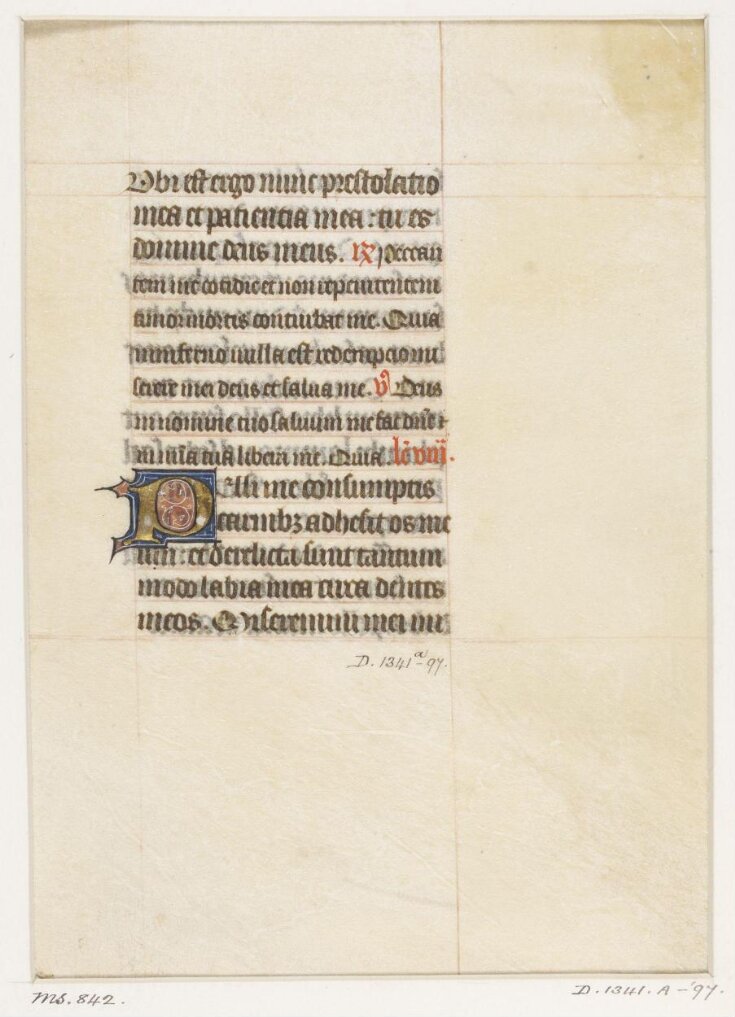 Vbi est ergo nunc prestolatio
mea et patientia mea : tu es
domine deus meus. R Peccan
tem me cotidie et non repenitentem
timor mortis conturbat me. Quia
in inferno nulla est redempcio mi
serere mei deus et salua me. V Deus
in nomine tuo saluum me fac dn̄e ⁊
in uirtute tua libera me. Quia. lc̄ viii.
Pelli mee consumptis
carnibꝫ adhesit os me
um : et derelicta sunt tantum
modo labia mea circa dentes
meos. Miseremini mei mi
D. 1341ᵃ-97.
MS. 842.
D. 1341. A-'97.